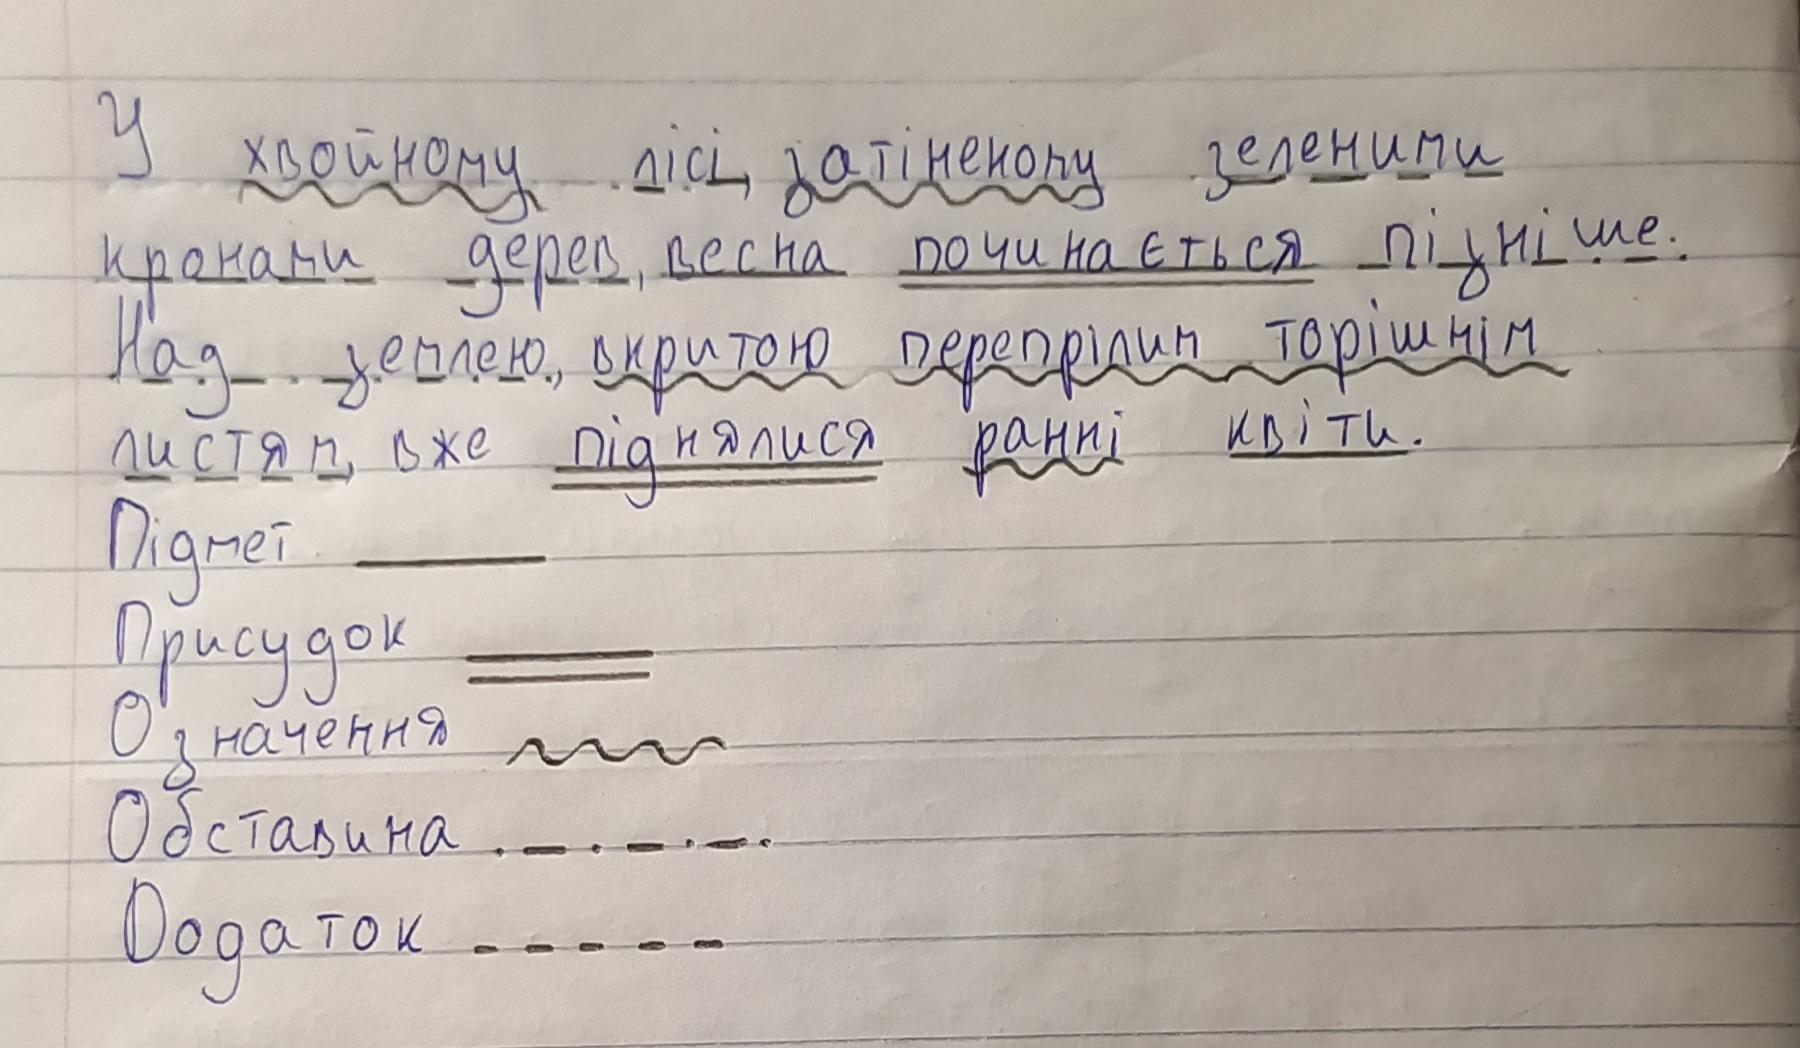 У хвойному лісі, затіненому зеленими
кронами дерев, весна починається пізніше.
Над землею, вкритою перепрілим торішнім
листям, вже піднялися ранні квіти.
Підмет
Присудок
Означення
Обставина
Додаток